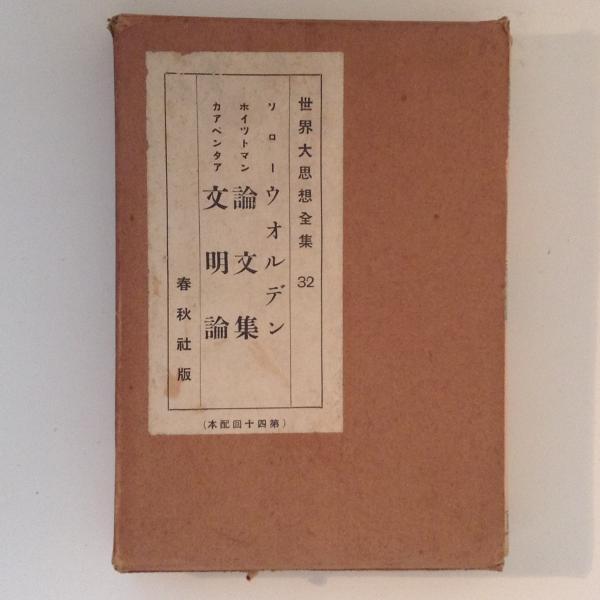 世界大思想全集 32
ソロー ウオルデン
ホイツトマン 論文集
カアペンタア 文明論
春秋社版
(第四十回配本)